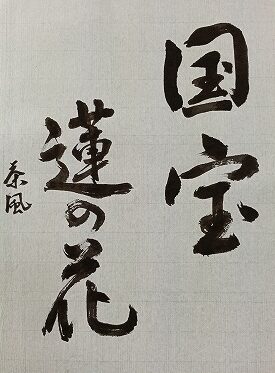 国宝
蓮の花
泰風